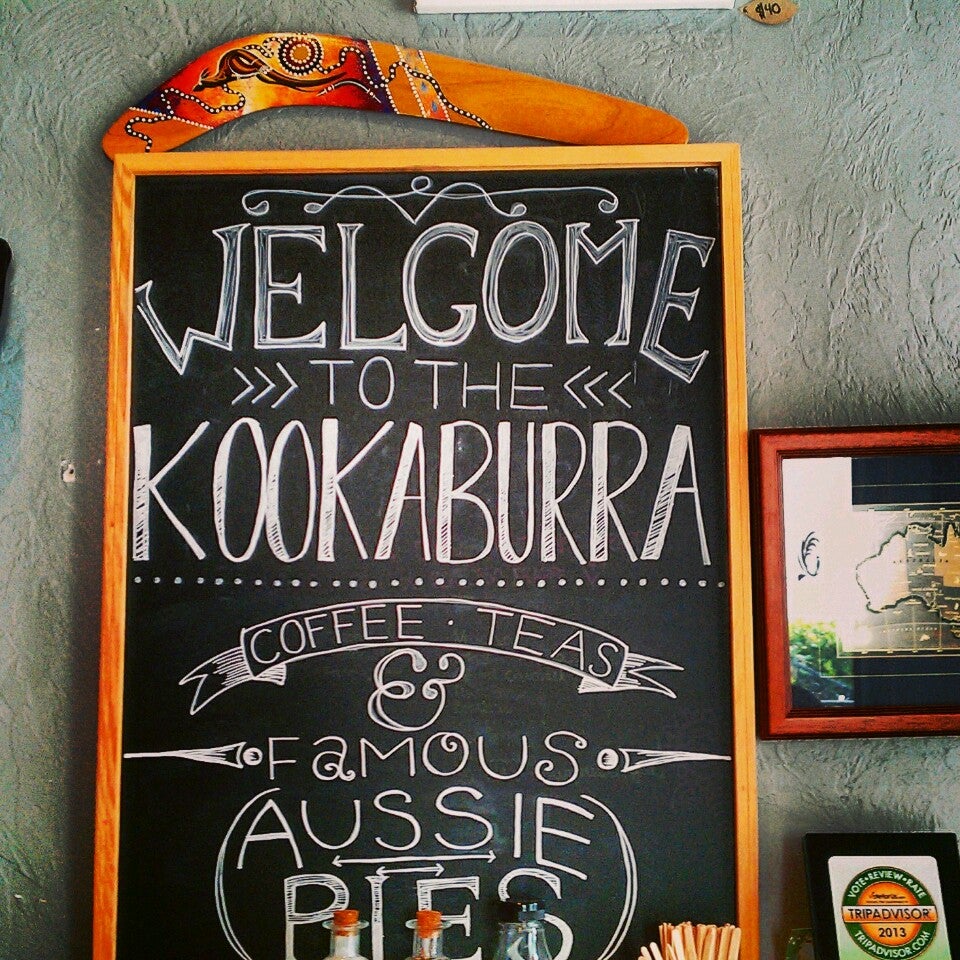 $40
WELCOME
TO THE
KOOKABURRA
COFFEE · TEAS
&
FAMOUS
AUSSIE
PIES
VOTE • REVIEW • RATE
TRIPADVISOR
2013
TRIPADVISOR.COM